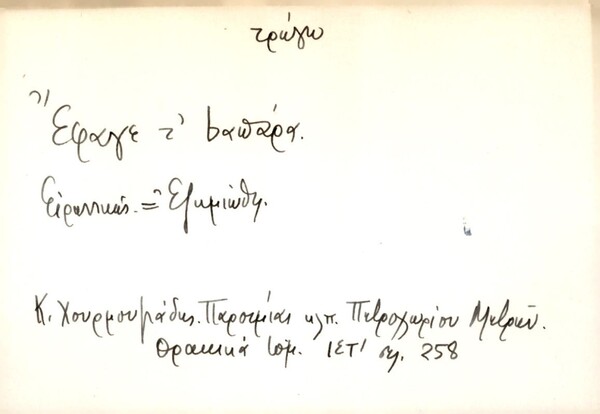 τρώγω
Ἔφαγε τ' βαπάρα.
Εἰρωνικῶς = Ἐζημιώθη.
Κ. Χουρμουζιάδης. Παροιμίαι κλπ. Πετροχωρίου Μετρῶν.
Θρακικά τόμ. ΙΣΤ' σελ. 258